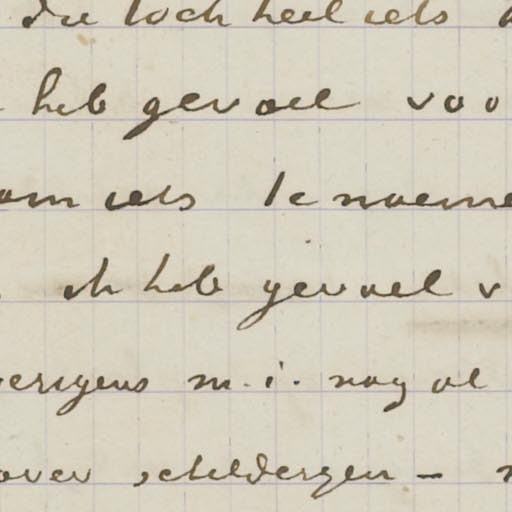 die toch heel iets
heb gevoel voo
om iets te noeme
ik heb gevoel v
verigens m.i. nog al
over schilderyen –